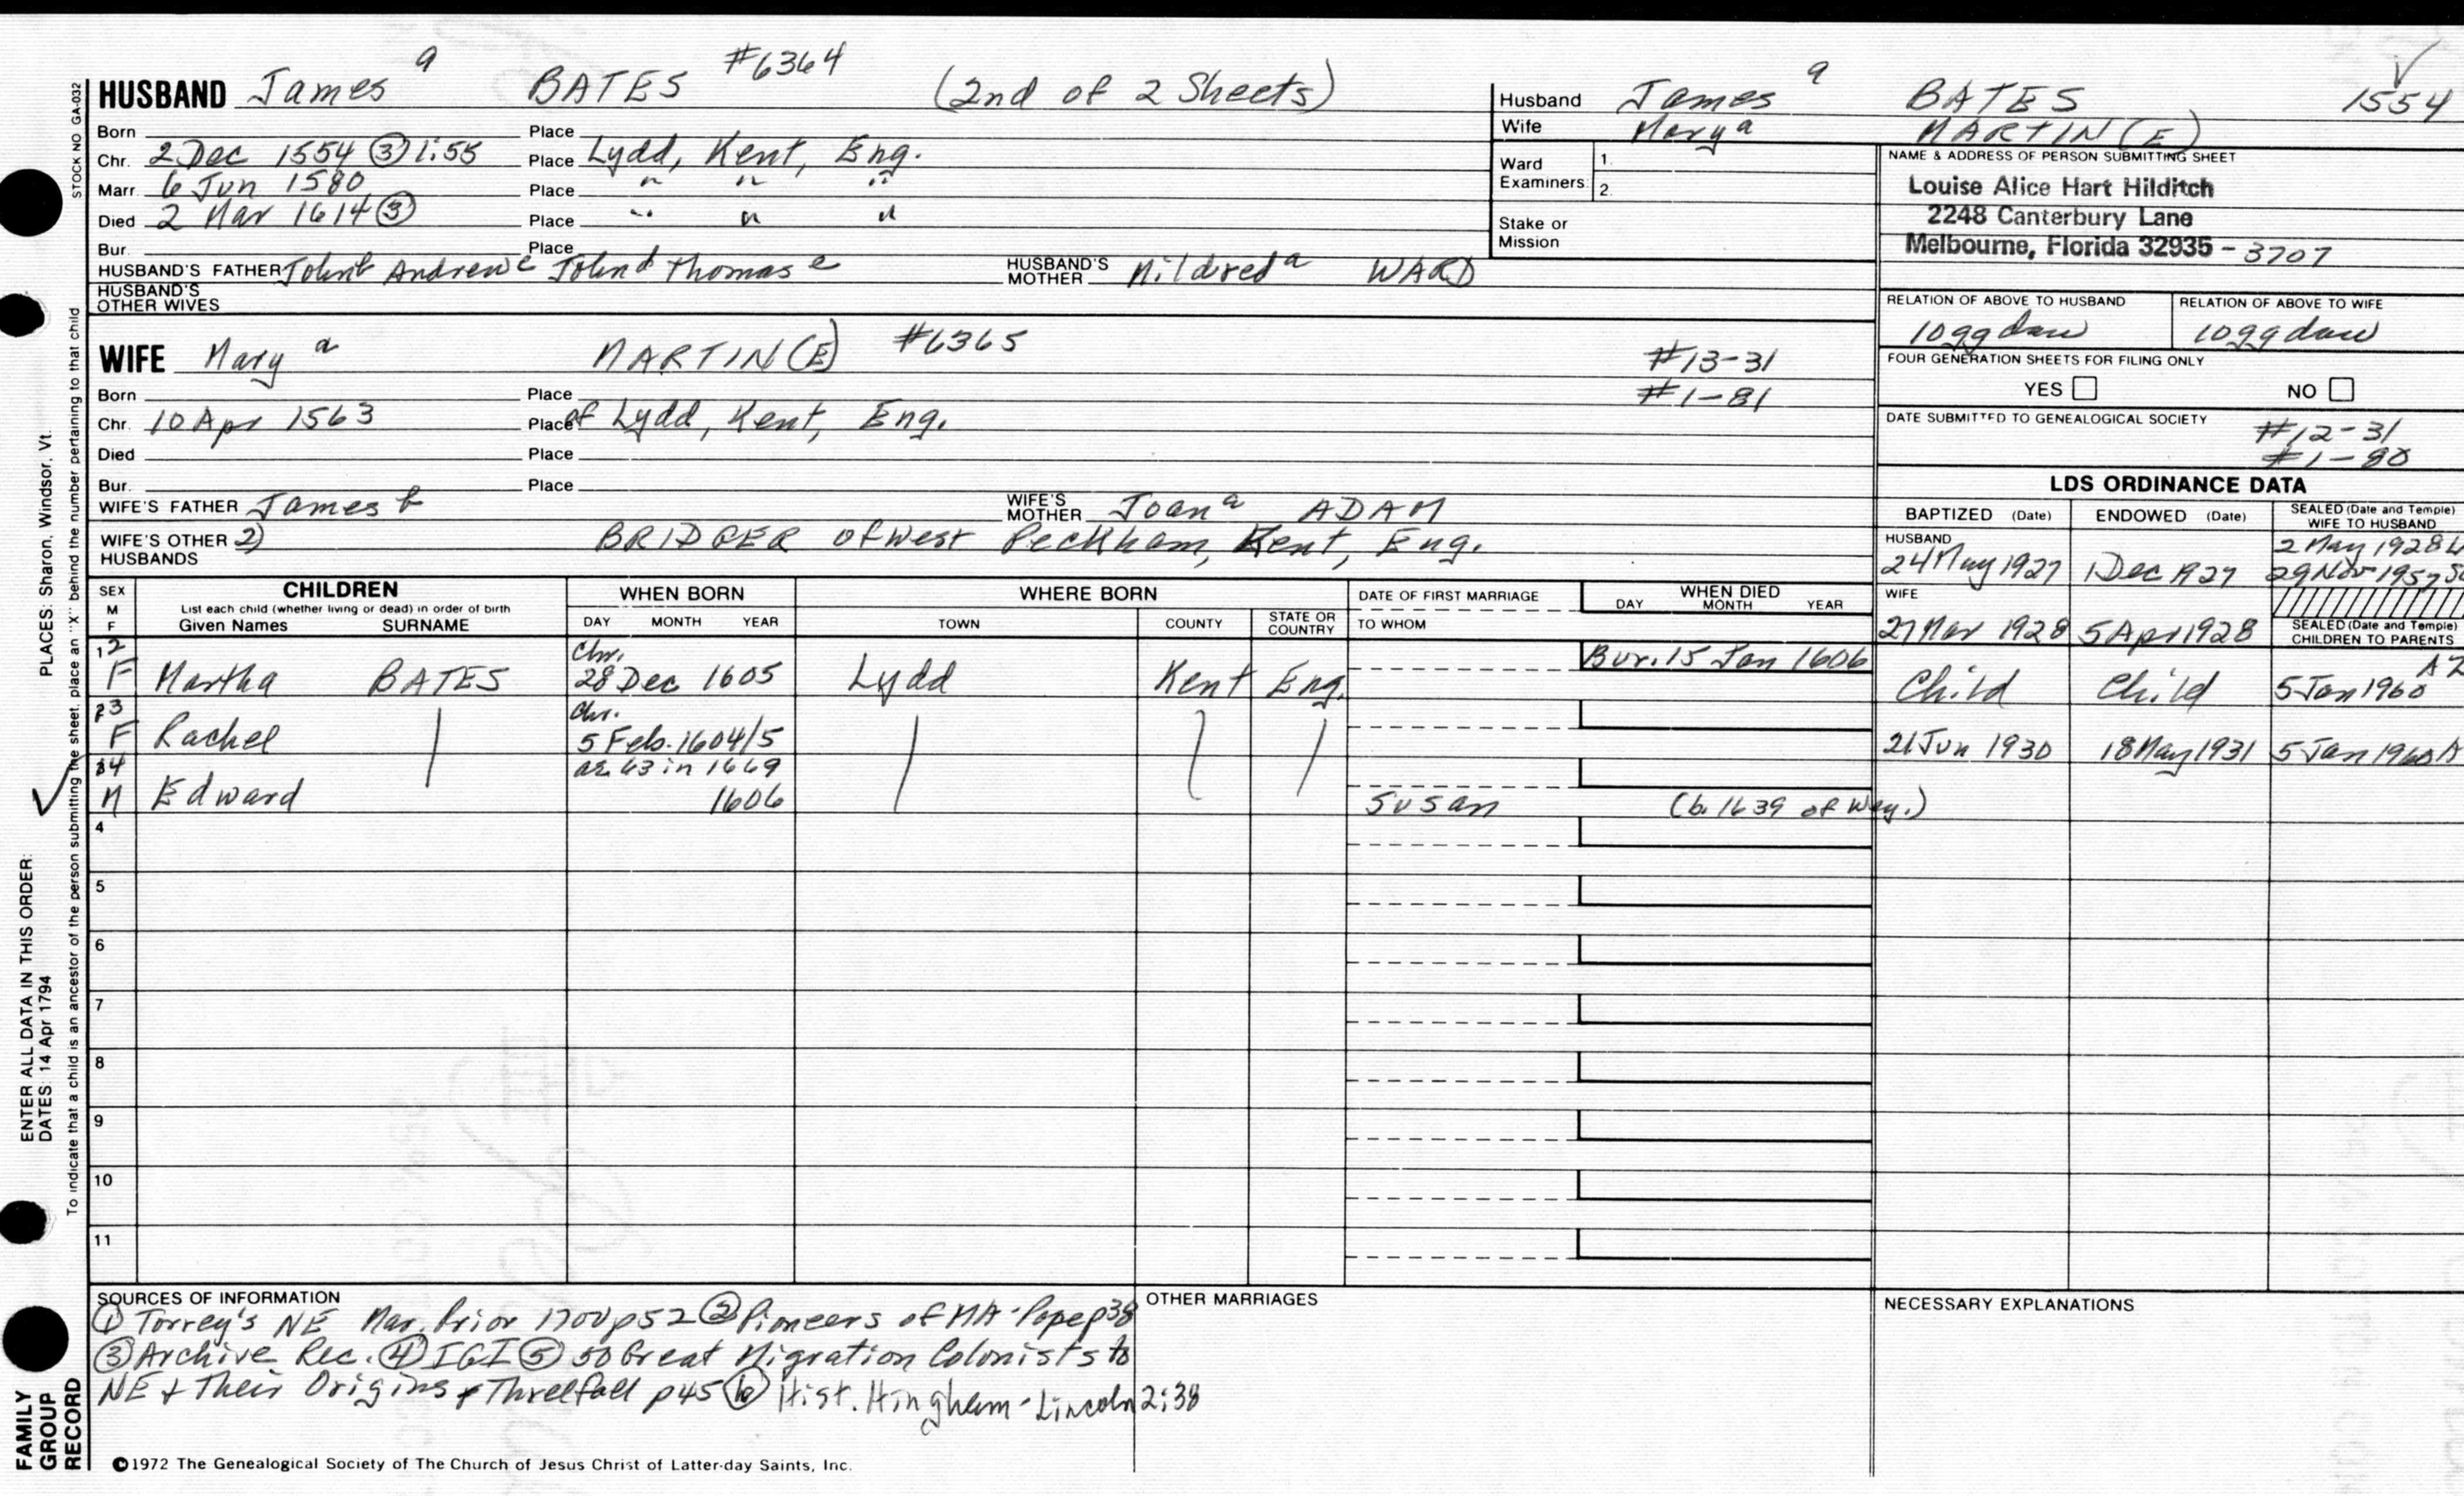 HUSBAND James a BATES #6364 (2nd of 2 Sheets)
Born Place
Chr. 2 Dec 1554 ③ 1:55 Place Lydd, Kent, Eng.
Marr. 6 Jun 1580 Place " " "
Died 2 Mar 1614 ③ Place " " "
Bur. Place
HUSBAND'S FATHER John b Andrew c John d Thomas e HUSBAND'S MOTHER Mildred a WARD
HUSBAND'S OTHER WIVES
WIFE Mary a MARTIN(E) #6365
#13-31
#1-81
Born Place
Chr. 10 Apr 1563 Place of Lydd, Kent, Eng.
Died Place
Bur. Place
WIFE'S FATHER James b WIFE'S MOTHER Joan a ADAM
WIFE'S OTHER HUSBANDS 2) BRIDGER of West Peckham, Kent, Eng.
Husband James a BATES 1554
Wife Mary a MARTIN(E)
Ward Examiners 1.
2.
Stake or Mission
NAME & ADDRESS OF PERSON SUBMITTING SHEET
Louise Alice Hart Hilditch
2248 Canterbury Lane
Melbourne, Florida 32935-3707
RELATION OF ABOVE TO HUSBAND RELATION OF ABOVE TO WIFE
10gg dau 10gg dau
FOUR GENERATION SHEETS FOR FILING ONLY
YES NO
DATE SUBMITTED TO GENEALOGICAL SOCIETY
#12-31
#1-80
LDS ORDINANCE DATA
BAPTIZED (Date) ENDOWED (Date) SEALED (Date and Temple) WIFE TO HUSBAND
HUSBAND
24 May 1927 1 Dec 1927 2 May 1928
29 Nov 1957
WIFE
27 Mar 1928 5 Apr 1928 SEALED (Date and Temple) CHILDREN TO PARENTS
SEX M F CHILDREN List each child (whether living or dead) in order of birth Given Names SURNAME
WHEN BORN DAY MONTH YEAR
WHERE BORN TOWN COUNTY STATE OR COUNTRY
DATE OF FIRST MARRIAGE TO WHOM
WHEN DIED DAY MONTH YEAR
12 F Martha BATES Chr. 28 Dec 1605 Lydd Kent Eng. Bur. 15 Jan 1606 Child Child 5 Jan 1960 AZ
13 F Rachel Chr. 5 Feb. 1604/5 21 Jun 1930 18 May 1931 5 Jan 1960 A
14 M Edward ae. 63 in 1669 1606 Susan (b. 1639 of Wey.)
4
5
6
7
8
9
10
11
SOURCES OF INFORMATION
① Torrey's NE Mar. Prior 1700 p52 ② Pioneers of MA - Pope p38
③ Archive Rec. ④ IGI ⑤ 50 Great Migration Colonists to
NE & Their Origins Threlfall p45 ⑥ Hist. Hingham - Lincoln 2:38
OTHER MARRIAGES
NECESSARY EXPLANATIONS
©1972 The Genealogical Society of The Church of Jesus Christ of Latter-day Saints, Inc.
STOCK NO GA-032
To indicate that a child is an ancestor of the person submitting the sheet, place an "X" behind the number pertaining to that child
ENTER ALL DATA IN THIS ORDER: PLACES: Sharon, Windsor, Vt.
DATES: 14 Apr 1794
FAMILY GROUP RECORD